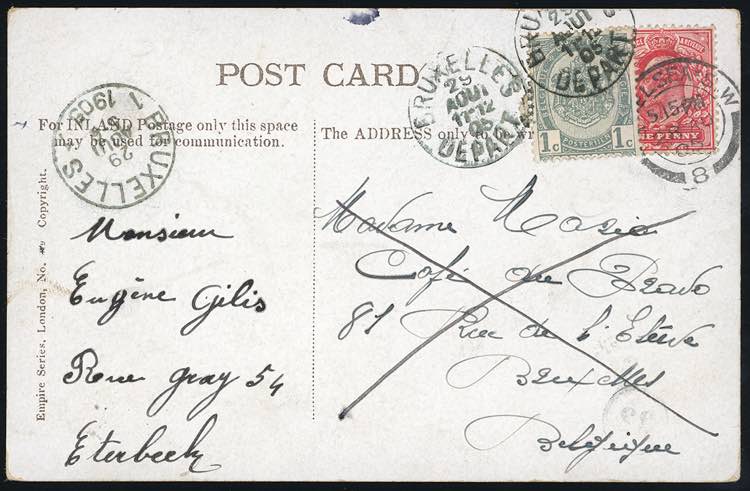 POST CARD
For INLAND Postage only this space
may be used for communication.
The ADDRESS only to be wr
Empire Series, London, No.
Copyright.
Monsieur
Eugène Gilis
Rue Gray 54
Eterbeek
Madame
Café du
81 Rue de
Bruxelles
Belgique
BRUXELLES
29
AOUT
11-12
05
DEPART
BRU
29
AOUT
11-12
05
DEPART
BRUXELLES 1
1905
29
1c
1c
POSTERIJEN
NE PENNY
5.15 PM
8